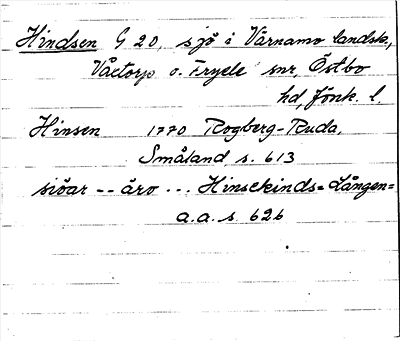 Hindsen G 20, sjö i Värnamo landsk.,
Våxtorp o. Fryele snr, Östbo
hd, Jönk. l.
Hinsen 1770 Rogberg-Ruda,
Småland, s. 613
siöar -- äro ... Hinsekinds= Lången=
a.a. s. 626